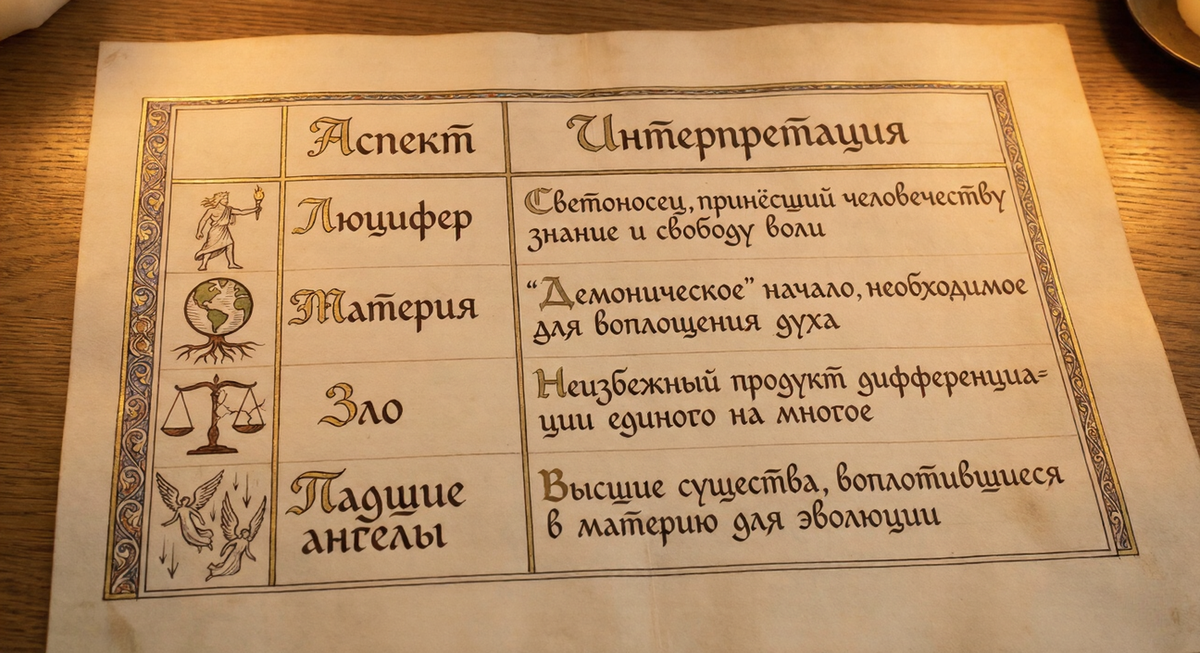 Аспект
Интерпретация
Люцифер
Светоносец, принёсший человечеству
знание и свободу воли
Материя
“Демоническое” начало, необходимое
для воплощения духа
Зло
Неизбежный продукт дифференциа=
ции единого на многое
Падшие
ангелы
Высшие существа, воплотившиеся
в материю для эволюции